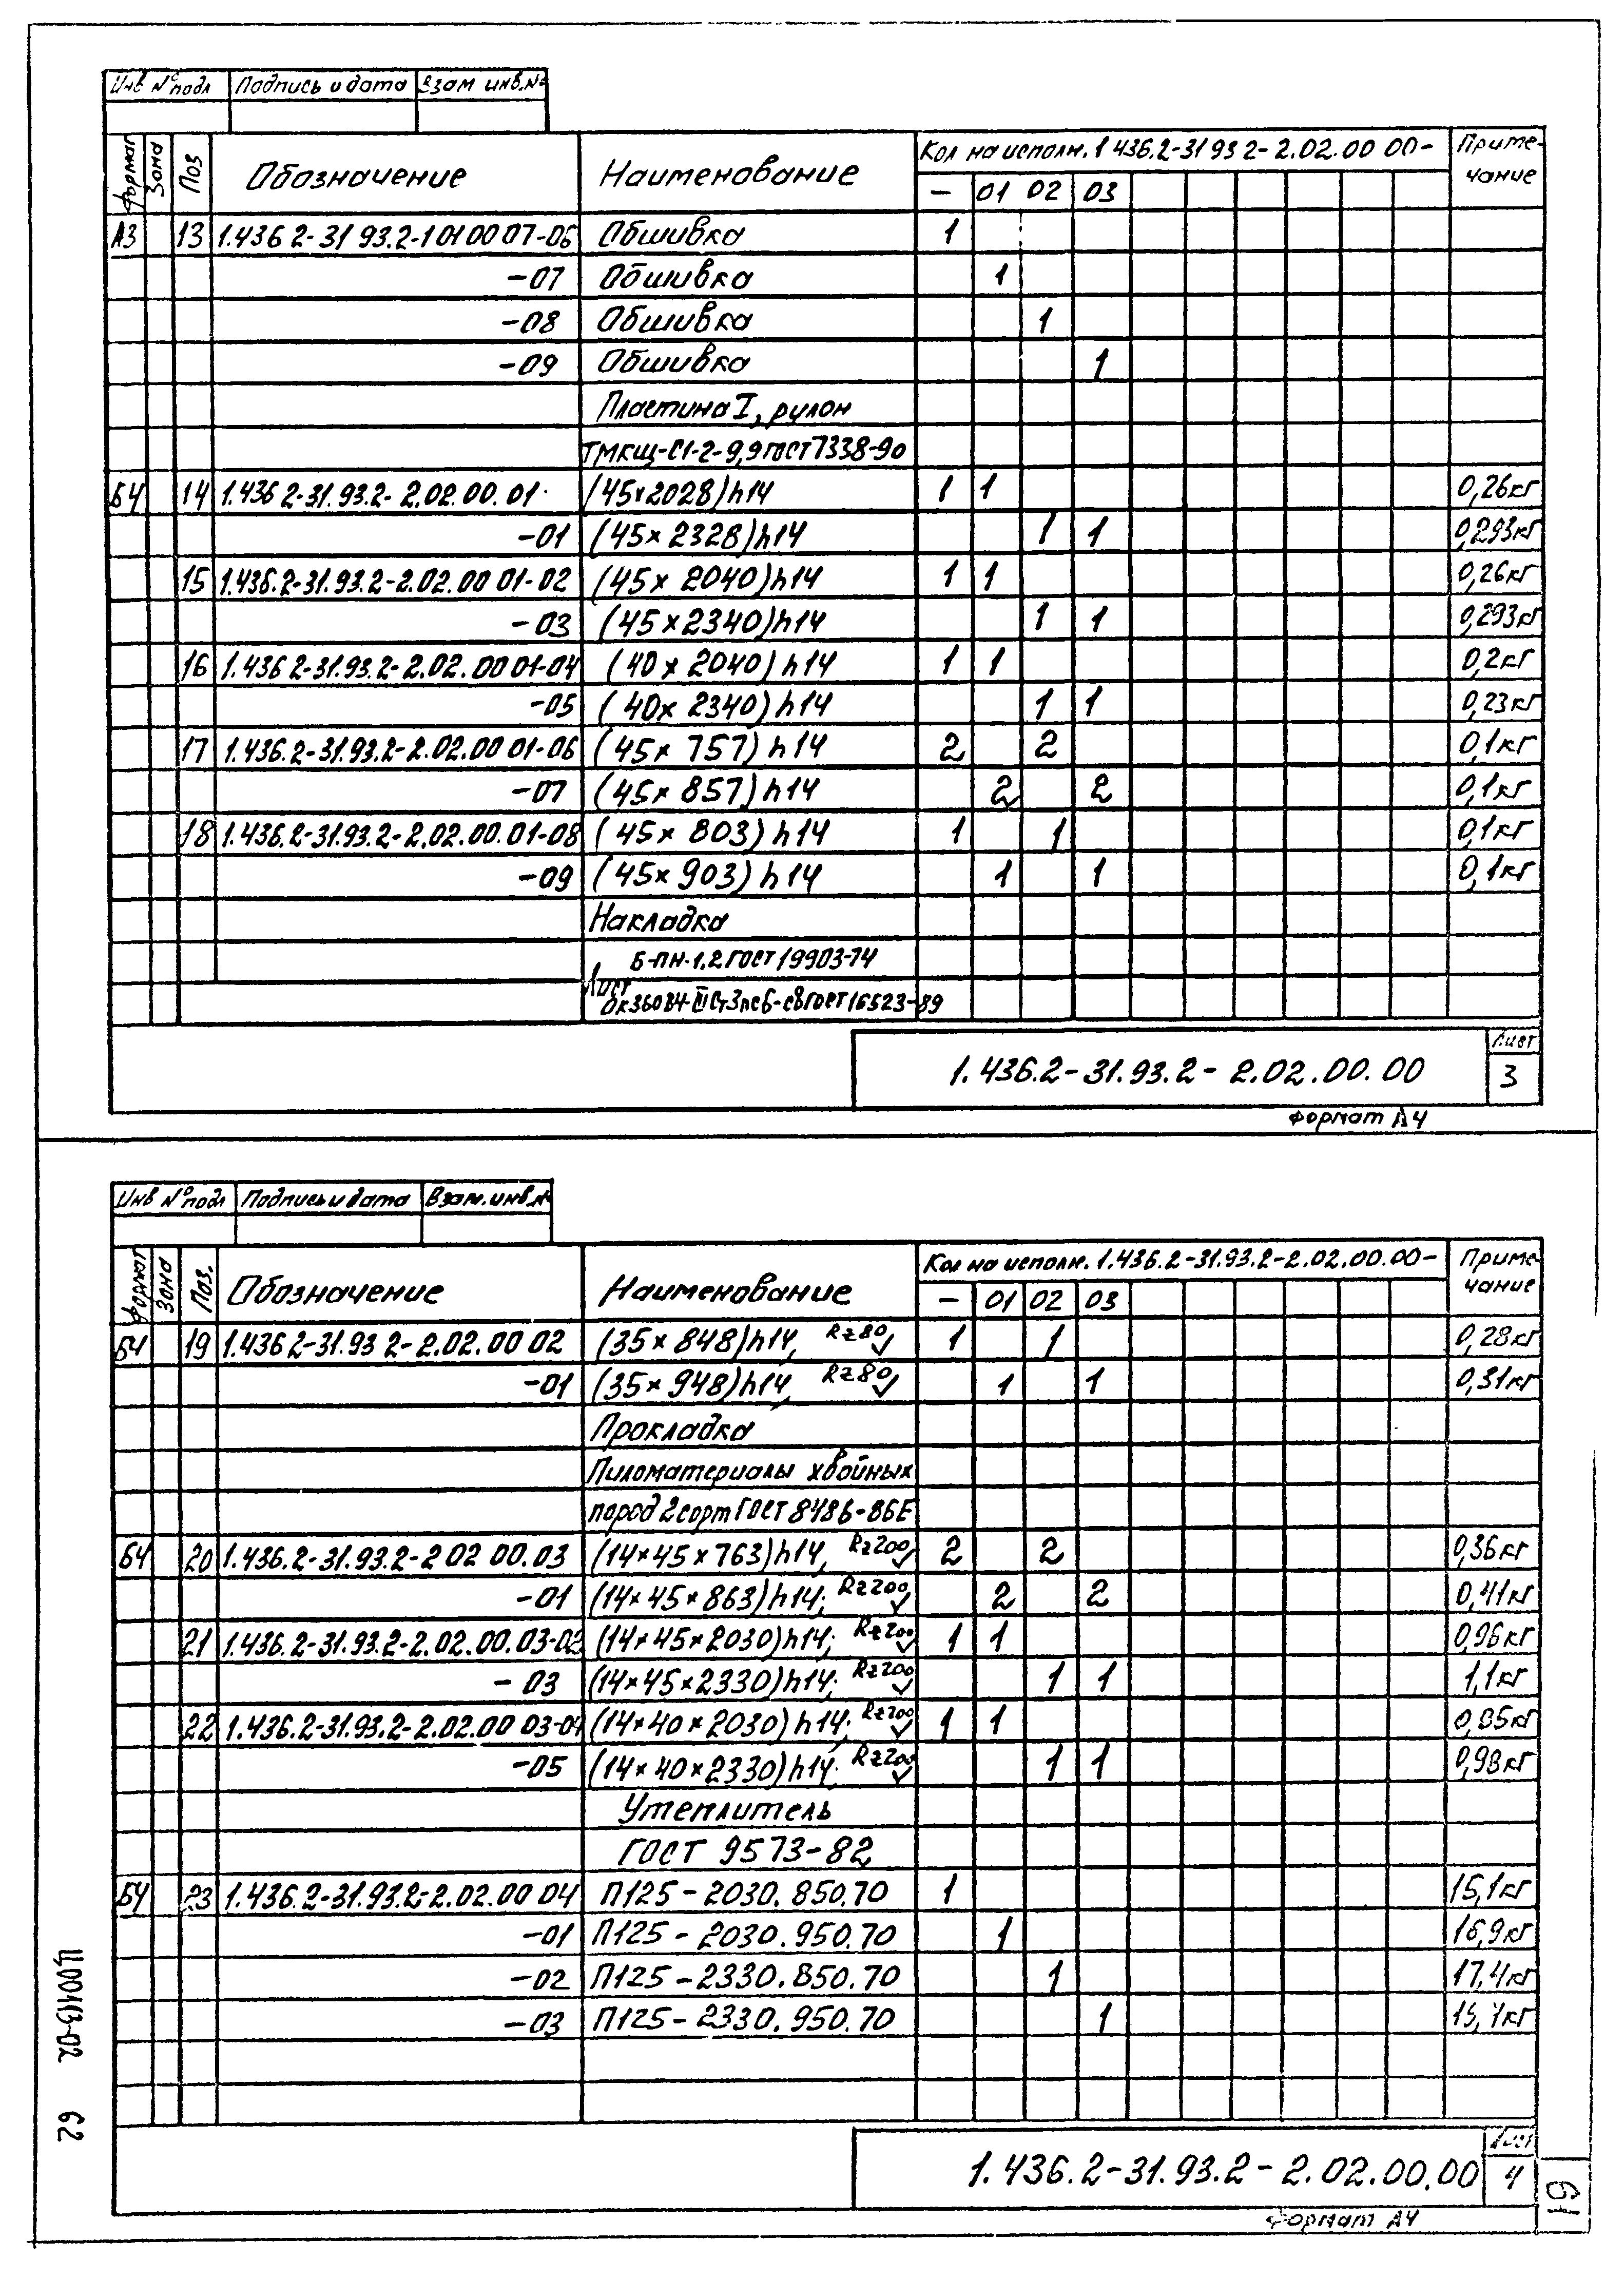 Инв № подл Подпись и дата Взам инв. №
Формат Зона Поз Обозначение Наименование Кол на исполн. 1 436.2-31 93 2-2.02.00 00- Приме-
чание
— 01 02 03
А3 13 1.436 2-31 93.2-1 01 00 07-06 Обшивка 1
-07 Обшивка 1
-08 Обшивка 1
-09 Обшивка 1
Пластина I, рулон
ТМКЩ-С1-2-9,9 ГОСТ 7338-90
БЧ 14 1.436 2-31.93.2-2.02.00.01 (45×2028)h14 1 1 0,26кг
-01 (45×2328)h14 1 1 0,293кг
15 1.436.2-31.93.2-2.02.00 01-02 (45×2040)h14 1 1 0,26кг
-03 (45×2340)h14 1 1 0,293кг
16 1.436 2-31.93.2-2.02.00 01-04 (40×2040)h14 1 1 0,2кг
-05 (40×2340)h14 1 1 0,23кг
17 1.436.2-31.93.2-2.02.00 01-06 (45×757)h14 2 2 0,1кг
-07 (45×857)h14 2 2 0,1кг
18 1.436.2-31.93.2-2.02.00.01-08 (45×803)h14 1 1 0,1кг
-09 (45×903)h14 1 1 0,1кг
Накладка
Б-ПН-1,2 ГОСТ 19903-74
Лист
ОК360В4-III Ст3пс5-св ГОСТ 16523-89
1.436.2-31.93.2-2.02.00.00 Лист
3
Формат А4
Инв № подл Подпись и дата Взам. инв. №
Формат Зона Поз. Обозначение Наименование Кол на исполн. 1.436.2-31.93.2-2.02.00.00- Приме
чание
— 01 02 03
БЧ 19 1.436 2-31.93 2-2.02.00 02 (35×848)h14, Rz80 1 1 0,28кг
-01 (35×948)h14, Rz80 1 1 0,31кг
Прокладка
Пиломатериалы хвойных
пород 2 сорт ГОСТ 8486-86Е
БЧ 20 1.436.2-31.93.2-2 02 00.03 (14×45×763)h14, Rz200 2 2 0,36кг
-01 (14×45×863)h14; Rz200 2 2 0,41кг
21 1.436.2-31.93.2-2.02.00.03-02 (14×45×2030)h14; Rz200 1 1 0,96кг
-03 (14×45×2330)h14; Rz200 1 1 1,1кг
22 1.436.2-31.93.2-2.02.00 03-04 (14×40×2030)h14; Rz200 1 1 0,85кг
-05 (14×40×2330)h14; Rz200 1 1 0,98кг
Утеплитель
ГОСТ 9573-82
БЧ 23 1.436.2-31.93.2-2.02.00 04 П125-2030.850.70 1 15,1кг
-01 П125-2030.950.70 1 16,9кг
-02 П125-2330.850.70 1 17,4кг
-03 П125-2330.950.70 1
1.436.2-31.93.2-2.02.00.00 Лист
4
Формат А4
Ц00413-02 62
61